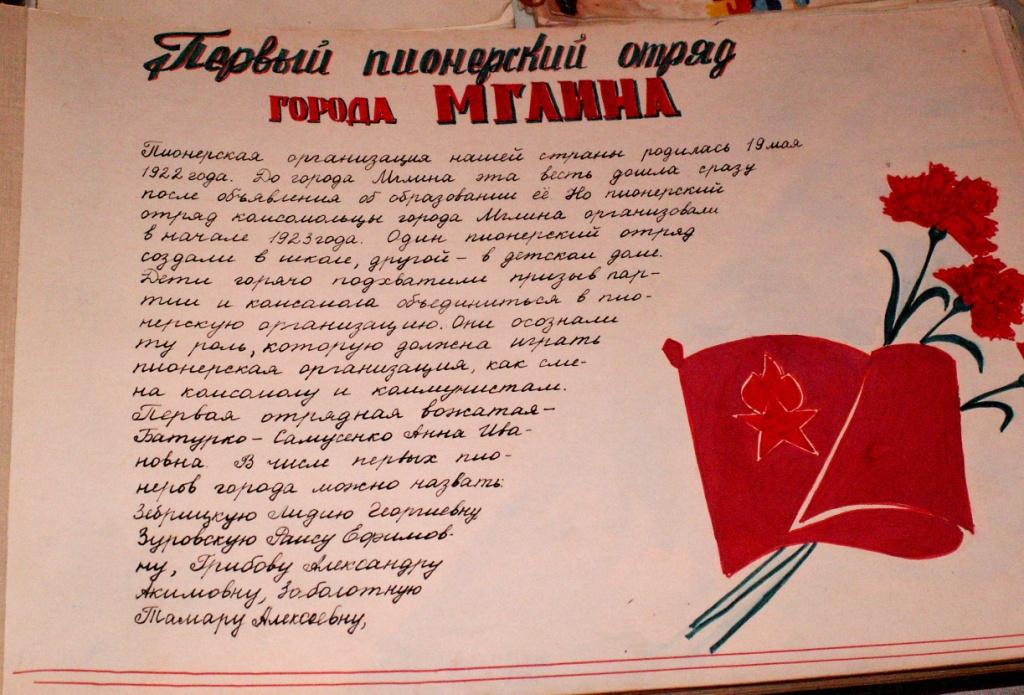 Первый пионерский отряд
города МГЛИНА
Пионерская организация нашей страны родилась 19 мая
1922 года. До города Мглина эта весть дошла сразу
после объявления об образовании её. Но пионерский
отряд комсомольцы города Мглина организовали
в начале 1923 года. Один пионерский отряд
создали в школе, другой – в детском доме.
Дети горячо подхватили призыв пар-
тии и комсомола объединиться в пио-
нерскую организацию. Они осознали
ту роль, которую должна играть
пионерская организация, как сме-
на комсомолу и коммунистам.
Первая отрядная вожатая –
Батурко – Самусенко Анна Ива-
новна. В числе первых пио-
неров города можно назвать:
Зебрицкую Лидию Георгиевну
Зуровскую Раису Ефимов-
ну, Грибову Александру
Акимовну, Заболотную
Тамару Алексеевну,